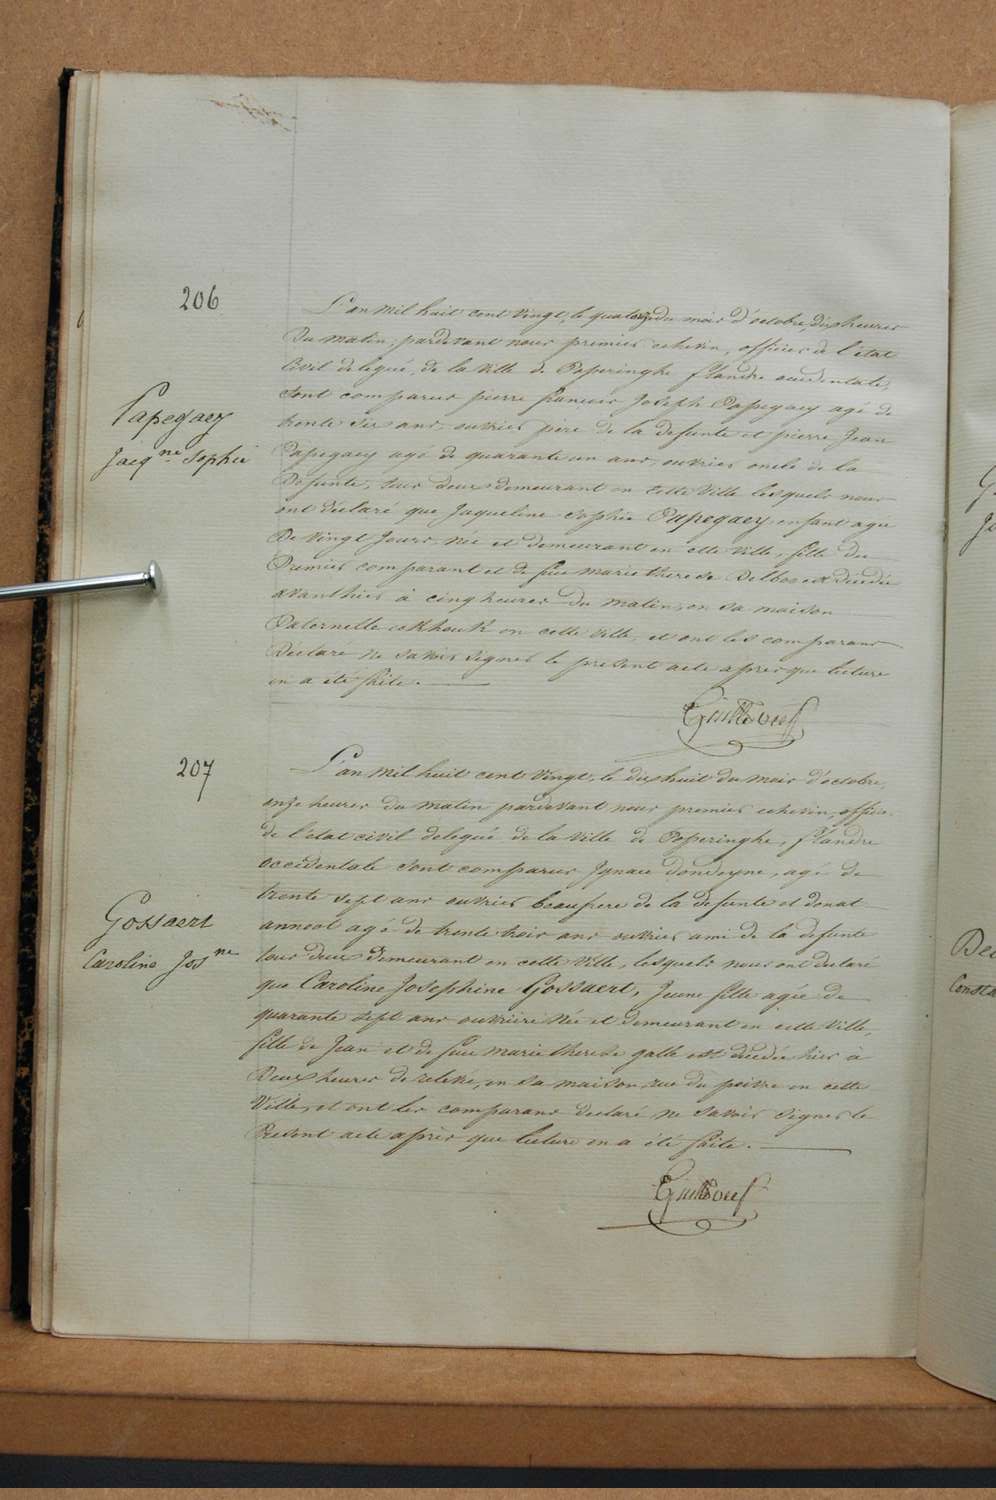 206
Papegaey
Jacq.ne Sophie
L'an mil huit cent vingt, le quatorze du mois d'octobre, dix heures
du matin, pardevant nous premier echevin, officier de l'état
civil delegué, de la ville de Poperinghe flandre occidentale,
sont comparus pierre francois Joseph Papegaey agé de
trente six ans, ouvrier pere de la defunte et pierre Jean
Papegaey agé de quarante un ans, ouvrier oncle de la
Defunte, tous deux demeurant en cette ville lesquels nous
ont déclaré que Jaqueline Sophie Papegaey, enfant agée
De vingt Jours, née et demeurant en cette ville, fille du
Premier comparant et de feue marie therese est decedée
avanthier à cinq heures du matin, en sa maison
Paternelle en cette ville, et ont les comparans
Declaré ne savoir signer le present acte après que lecture
en a été faite.
207
Gossaert
Caroline Jos.ne
L'an mil huit cent vingt, le dix huit du mois d'octobre,
onze heures du matin pardevant nous premier echevin, officier
de l'etat civil delegué de la ville de Poperinghe, flandre
occidentale sont comparus Ignace Dondeyne, agé de
trente sept ans ouvrier beaufrere de la defunte et donat
annoot agé de trente trois ans ouvrier ami de la defunte
tous deux demeurant en cette ville, lesquels nous ont declaré
que Caroline Josephine Gossaert, Jeune fille agée de
quarante sept ans ouvriere née et demeurant en cette ville,
fille de Jean et de feue marie therese galle est decedée hier à
Deux heures de relevé, en sa maison rue du poivre en cette
Ville, et ont les comparans declaré ne savoir signer le
Present acte après que lecture en a été faite.